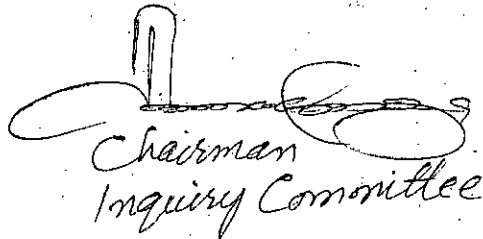 Chairman
Inquiry Committee